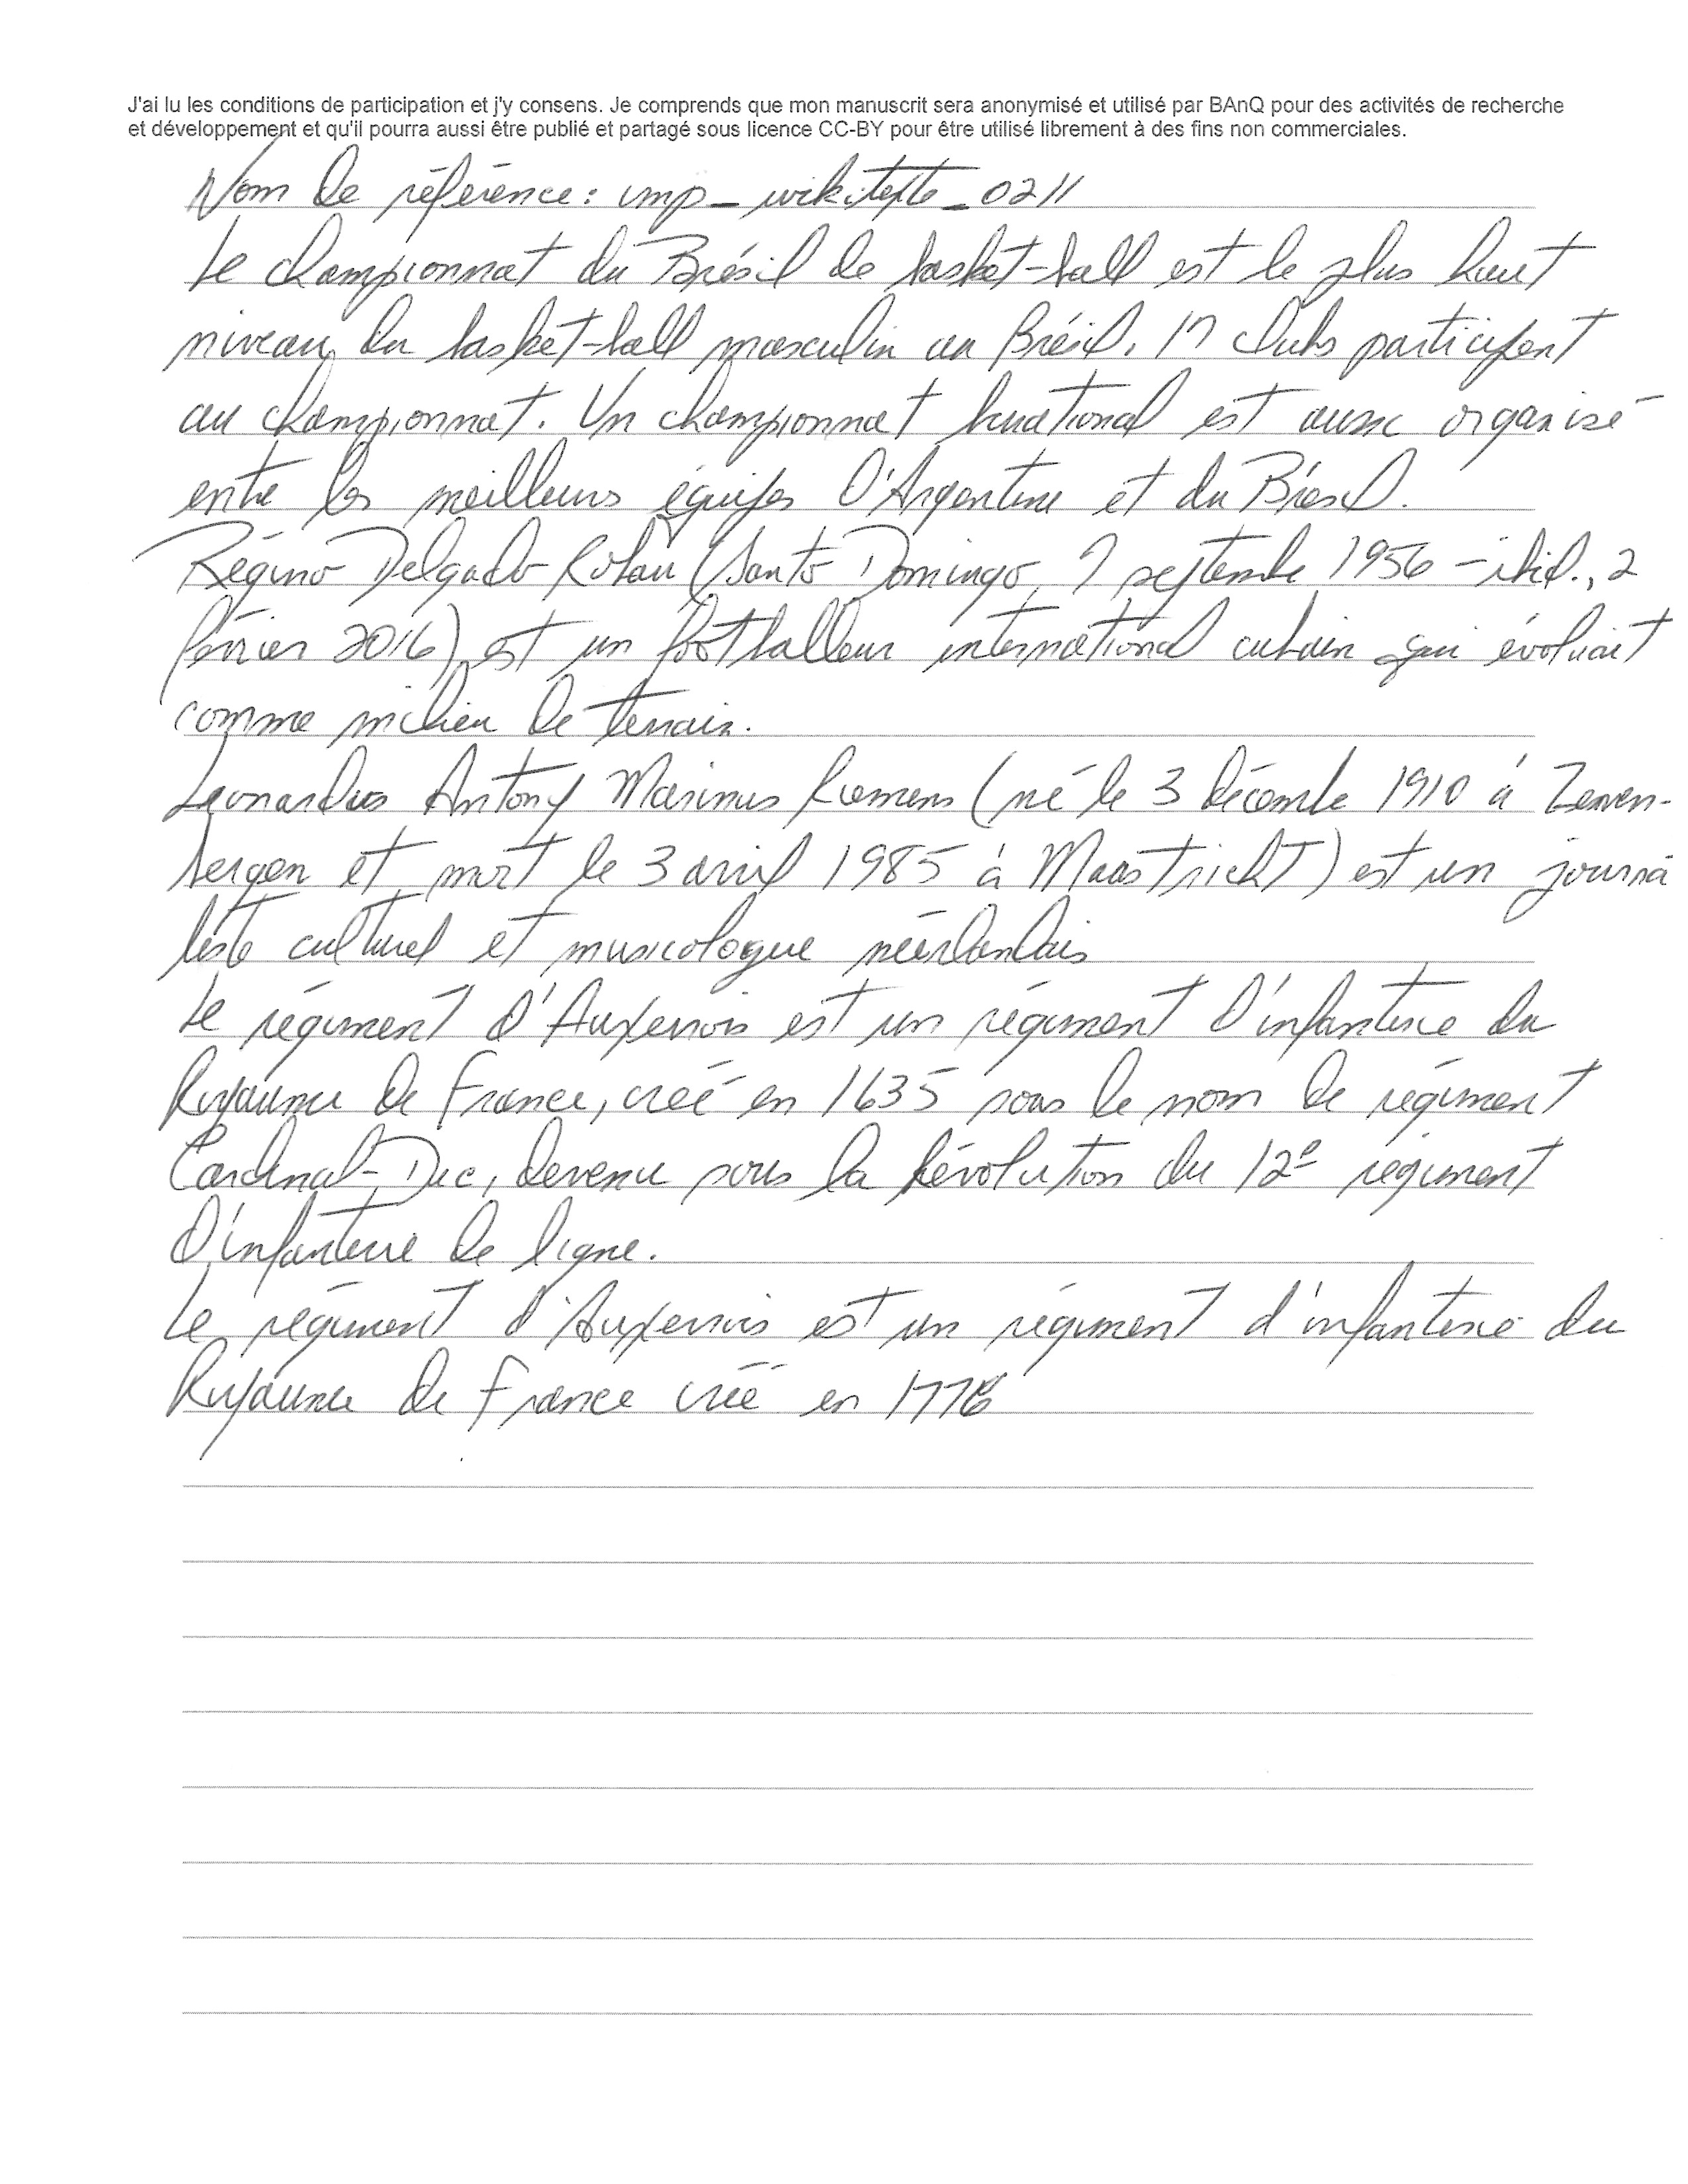 J'ai lu les conditions de participation et j'y consens. Je comprends que mon manuscrit sera anonymisé et utilisé par BAnQ pour des activités de recherche
et développement et qu'il pourra aussi être publié et partagé sous licence CC-BY pour être utilisé librement à des fins non commerciales.
Nom de référence : imp_wikitexte_0211
Le championnat du Brésil de basket-ball est le plus haut
niveau du basket-ball masculin au Brésil. 17 clubs participent
au championnat. Un championnat binational est aussi organisé
entre les meilleurs équipes d'Argentine et du Brésil.
Régino Delgado Robau (Santo Domingo, 7 septembre 1956 - ibid., 2
février 2016) est un footballeur international cubain qui évoluait
comme milieu de terrain.
Leonardus Antony Marinus Riemens (né le 3 décembre 1910 à Zeven-
bergen et mort le 3 avril 1985 à Maastricht) est un journa
liste culturel et musicologue néerlandais
Le régiment d'Auxerrois est un régiment d'infanterie du
Royaume de France, créé en 1635 sous le nom de régiment
Cardinal-Duc, devenu sous la Révolution du 12e régiment
d'infanterie de ligne.
Le régiment d'Auxerrois est un régiment d'infanterie du
Royaume de France créé en 1776